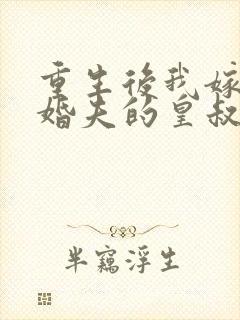 重生後我嫁
婚夫的皇叔
半竊浮生